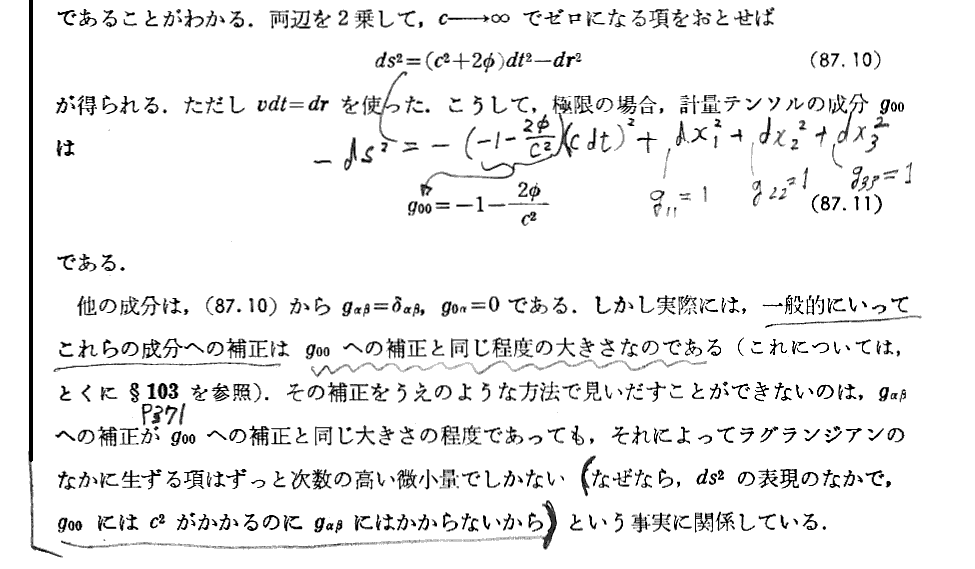 であることがわかる．両辺を2乗して，c⟶∞ でゼロになる項をおとせば
ds²=(c²+2φ)dt²−dr² (87.10)
が得られる．ただし vdt=dr を使った．こうして，極限の場合，計量テンソルの成分 g₀₀
は
−ds²=−(−1−2φ/c²)(cdt)²+dx₁²+dx₂²+dx₃²
g₁₁=1 g₂₂=1 g₃₃=1
g₀₀=−1−2φ/c² (87.11)
である．
他の成分は，(87.10) から gαβ=δαβ, g₀α=0 である．しかし実際には，一般的にいって
これらの成分への補正は g₀₀ への補正と同じ程度の大きさなのである（これについては，
とくに §103 を参照）．その補正をうえのような方法で見いだすことができないのは，gαβ
P371
への補正が g₀₀ への補正と同じ大きさの程度であっても，それによってラグランジアンの
なかに生ずる項はずっと次数の高い微小量でしかない（なぜなら，ds² の表現のなかで，
g₀₀ には c² がかかるのに gαβ にはかからないから）という事実に関係している．